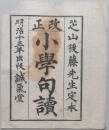 改正
芝山後藤先生定本
小學句讀
明治十三年出版 誠意堂